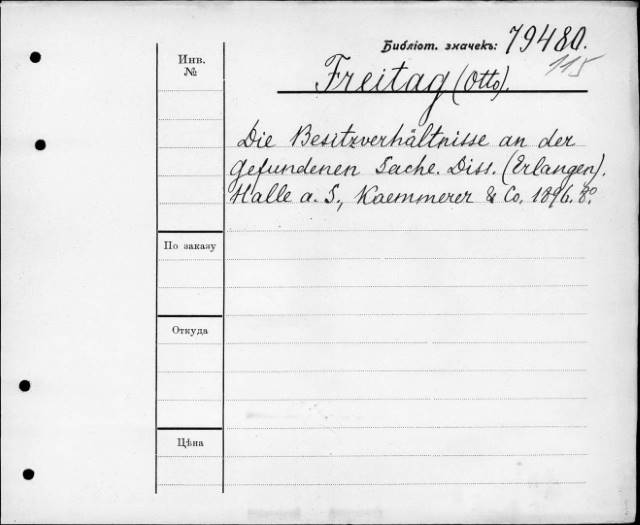 Библіот. значекъ: 79480.
115
Инв.
№
Freitag (Otto).
Die Besitzverhältnisse an der
gefundenen Sache. Diss. (Erlangen).
Halle a. S., Kaemmerer & Co. 1896. 8º.
По заказу
Откуда
Цѣна